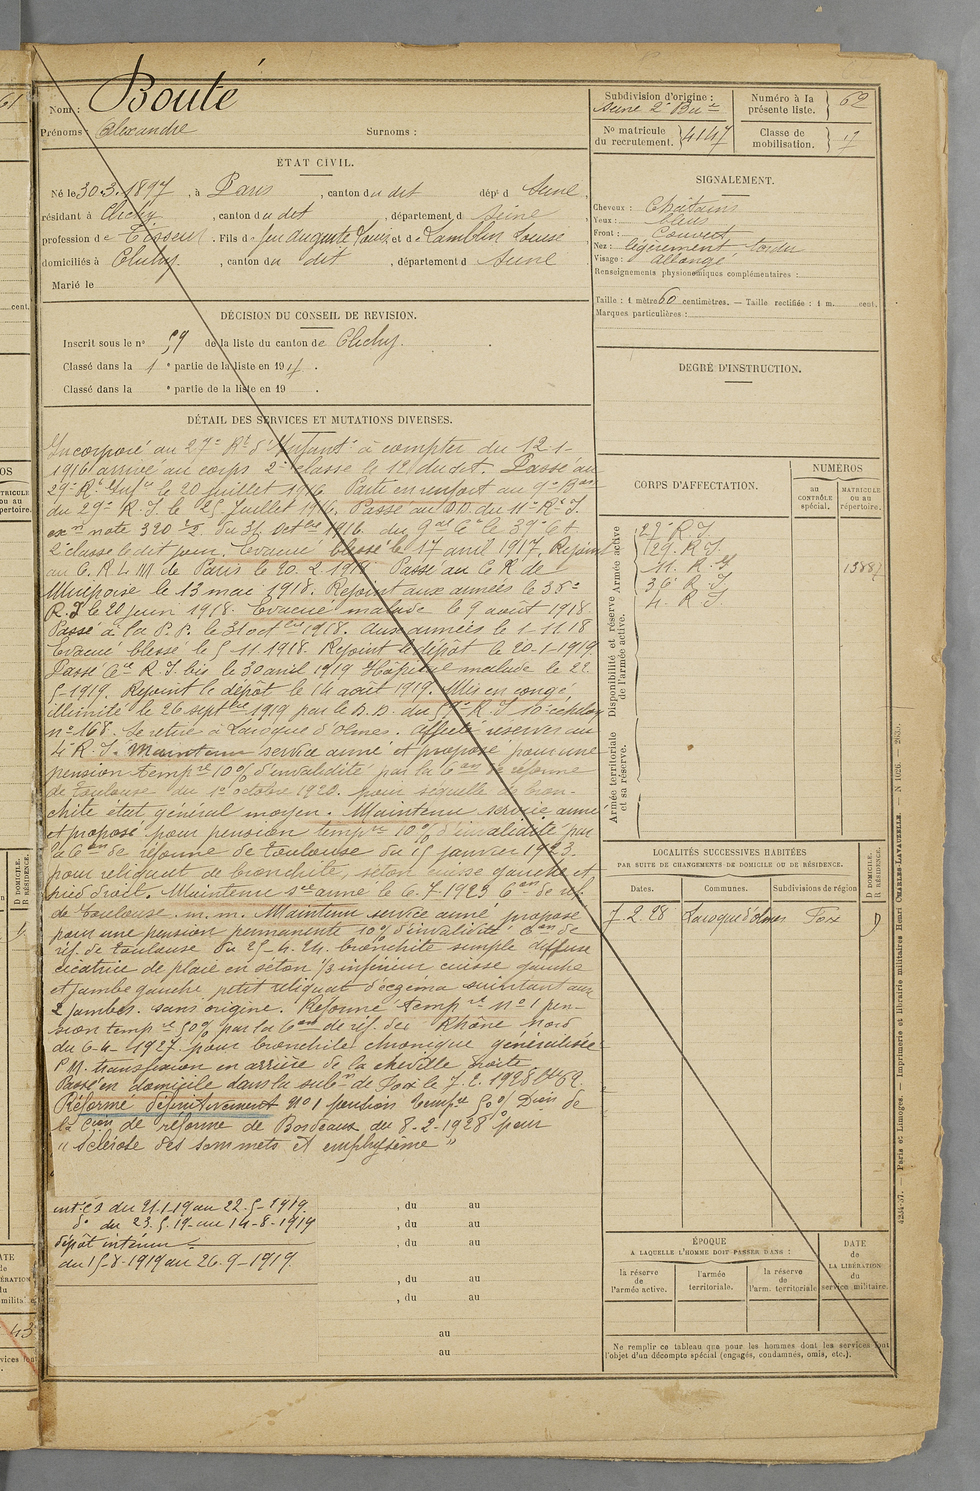 Nom : Bouté
Prénoms : Alexandre Surnoms :
ÉTAT CIVIL.
Né le 30.3.1897, à Paris, canton du dit, dépt d Seine,
résidant à Clichy, canton du dit, département d Seine
profession de Tisseur. Fils de feu Auguste Louis et de Lamblin Louise
domiciliés à Clichy, canton du dit, département d Seine
Marié le
DÉCISION DU CONSEIL DE REVISION.
Inscrit sous le n° 59 de la liste du canton de Clichy.
Classé dans la 1 e partie de la liste en 1917.
Classé dans la e partie de la liste en 19 .
DÉTAIL DES SERVICES ET MUTATIONS DIVERSES.
Incorporé au 27e Rt d'Infantie à compter du 12-1-
1916 arrivé au corps 2e classe le 12 dudit. Passé au
29e Rt Infie le 20 juillet 1916. Parti en renfort au 9e Bon
du 29e R.I. le 25 juillet 1916. Passé au D.D. du 11e Rt I.
exn note 320 du 31 octbre 1916. du 9e Cie le 39e et
2e classe le dit jour. Evacué blessé le 17 avril 1917. Rejoint
au C.R.L.M de Paris le 20.2.1918 Passé au C R de
Mirepoise le 13 mai 1918. Rejoint aux armées le 36e
R.I le 20 juin 1918. Evacué malade le 9 août 1918.
Passé à la P.P. le 31 octbre 1918. aux armées le 1-11 18
Evacué blessé le 5-11-1918. Rejoint le dépôt le 20-1-1919
Passé R.I. bis le 30 avril 1919 Hôpital malade le 22
5-1919. Rejoint le dépôt le 14 août 1919. Mis en congé
illimité le 26 septbre 1919 par le D.D. du 59e R.I 10e échelon
n° 168. Se retire à Laroque d'Olmes. Affecté réserves au
4 R.I. Maintenu service armé et proposé pour une
pension tempre 10% d'invalidité par la Con de réforme
de Toulouse du 1er octobre 1920. pour séquelle de bron-
chite état général moyen. Maintenu service armé
et proposé pour pension tempre 10% d'invalidité par
la Con de réforme de Toulouse du 15 janvier 1923.
pour reliquat de bronchite, séton cuisse gauche et
pied droit. Maintenu sce armé le 6-7-1923 Con de réf.
de Toulouse. m. m. Maintenu service armé, proposé
pour une pension permanente 10% d'invalidité Con de
réf. de Toulouse du 25-4-24. bronchite simple diffuse
cicatrice de plaie en séton 1/3 inférieur cuisse gauche
et jambe gauche petit reliquat d'eczema suintant aux
2 jambes. sans origine. Réformé tempre n°1 pen-
sion tempre 50% par la Con de réf. du Rhône Nord
du 6-4-1927. pour bronchite chronique généralisée
P.M. transfixion en arrière de la cheville droite
Passé en domicile dans la subon de Foix le 7.2.1928 n° 62.
Réformé définitivement N°1 pension tempre 50% Dion de
la Cion de réforme de Bordeaux du 8-2-1928 pour
"sclérose des sommets et emphysème"
int. C1 du 21.1-19 au 22.5-1919. , du au
d° du 23.5.19 au 14-8-1919 , du au
dépôt intérieur , du au
du 15-8-1919 au 26-9-1919.
, du au
, du au
au
au
Subdivision d'origine :
Seine 2e Bau
Numéro à la présente liste. 62
N° matricule du recrutement. 4147
Classe de mobilisation. 17
SIGNALEMENT.
Cheveux : Châtains
Yeux : bleus
Front : Couvert
Nez : légèrement tordu
Visage : allongé
Renseignements physionomiques complémentaires :
Taille : 1 mètre 60 centimètres. — Taille rectifiée : 1 m. cent.
Marques particulières :
DEGRÉ D'INSTRUCTION.
CORPS D'AFFECTATION.
NUMÉROS
AU CONTRÔLE spécial.
MATRICULE ou au répertoire.
Armée active
27 R.I.
29. R.I.
11. R.I 13887
36 R.I
4. R.I.
Disponibilité et réserve de l'armée active.
Armée territoriale et sa réserve.
LOCALITÉS SUCCESSIVES HABITÉES
PAR SUITE DE CHANGEMENTS DE DOMICILE OU DE RÉSIDENCE.
Dates. Communes. Subdivisions de région
D DOMICILE. R RÉSIDENCE.
7.2.28 Laroque d'olmes Foix D
ÉPOQUE
A LAQUELLE L'HOMME DOIT PASSER DANS :
la réserve de l'armée active.
l'armée territoriale.
la réserve de l'arm. territoriale
DATE de LA LIBÉRATION du service militaire.
Ne remplir ce tableau que pour les hommes dont les services font
l'objet d'un décompte spécial (engagés, condamnés, omis, etc.).
Paris et Limoges. — Imprimerie et librairie militaires Henri CHARLES-LAVAUZELLE.